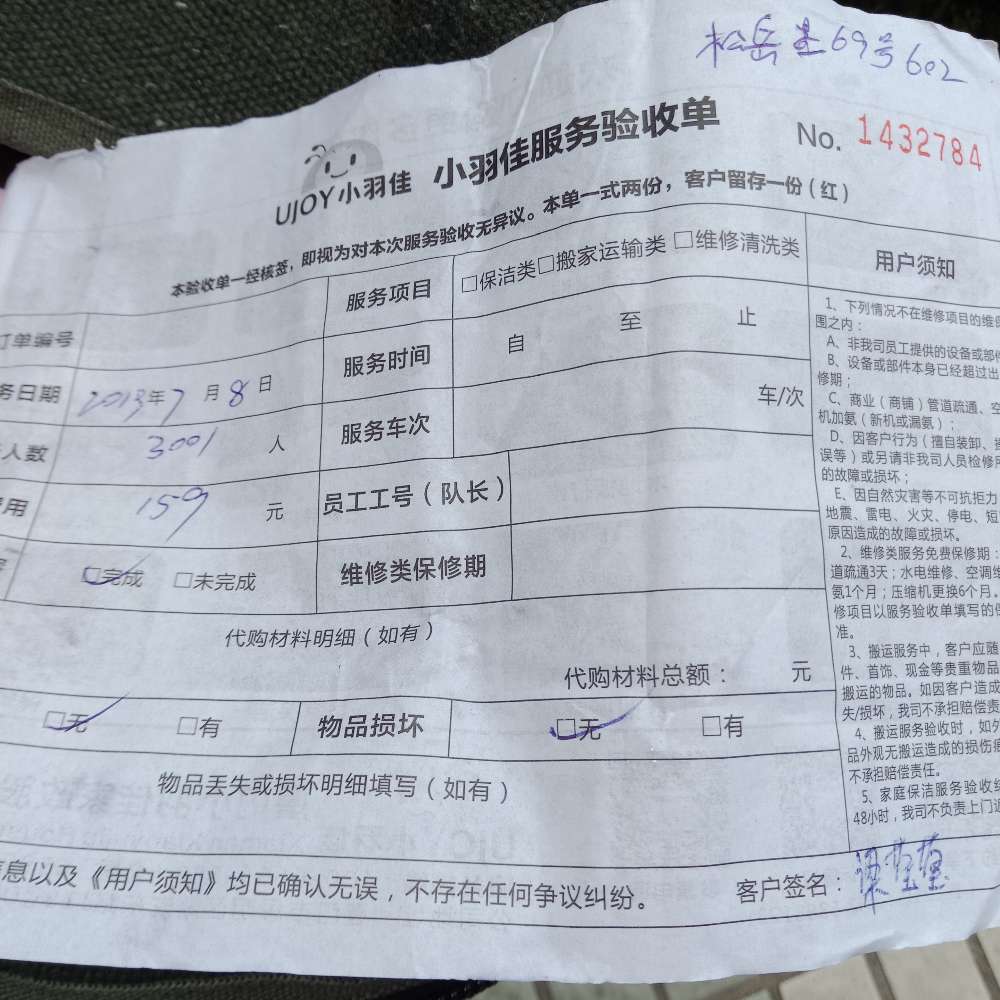 松岳里69号602
UJOY小羽佳 小羽佳服务验收单 No. 1432784
本验收单一经核签，即视为对本次服务验收无异议。本单一式两份，客户留存一份（红）
订单编号 服务项目 □保洁类□搬家运输类 □维修清洗类 用户须知
务日期 年7月8日 服务时间 自 至 止
人数 3001 人 服务车次 车/次
费用 159 元 员工工号（队长）
□完成 □未完成 维修类保修期
代购材料明细（如有）
代购材料总额： 元
□无 □有 物品损坏 □无 □有
物品丢失或损坏明细填写（如有）
息以及《用户须知》均已确认无误，不存在任何争议纠纷。 客户签名：
1、下列情况不在维修项目的维保
围之内：
A、非我司员工提供的设备或部件
B、设备或部件本身已经超过出
修期；
C、商业（商铺）管道疏通、空
机加氨（新机或漏氨）；
D、因客户行为（擅自装卸、操
误等）或另请非我司人员检修所
的故障或损坏；
E、因自然灾害等不可抗拒力
地震、雷电、火灾、停电、短
原因造成的故障或损坏。
2、维修类服务免费保修期：
道疏通3天；水电维修、空调维
氨1个月；压缩机更换6个月。
修项目以服务验收单填写的保
准。
3、搬运服务中，客户应随
件、首饰、现金等贵重物品
搬运的物品，如因客户造成
失/损坏，我司不承担赔偿责
4、搬运服务验收时，如外
品外观无搬运造成的损伤痕
不承担赔偿责任。
5、家庭保洁服务验收结
48小时，我司不负责上门返